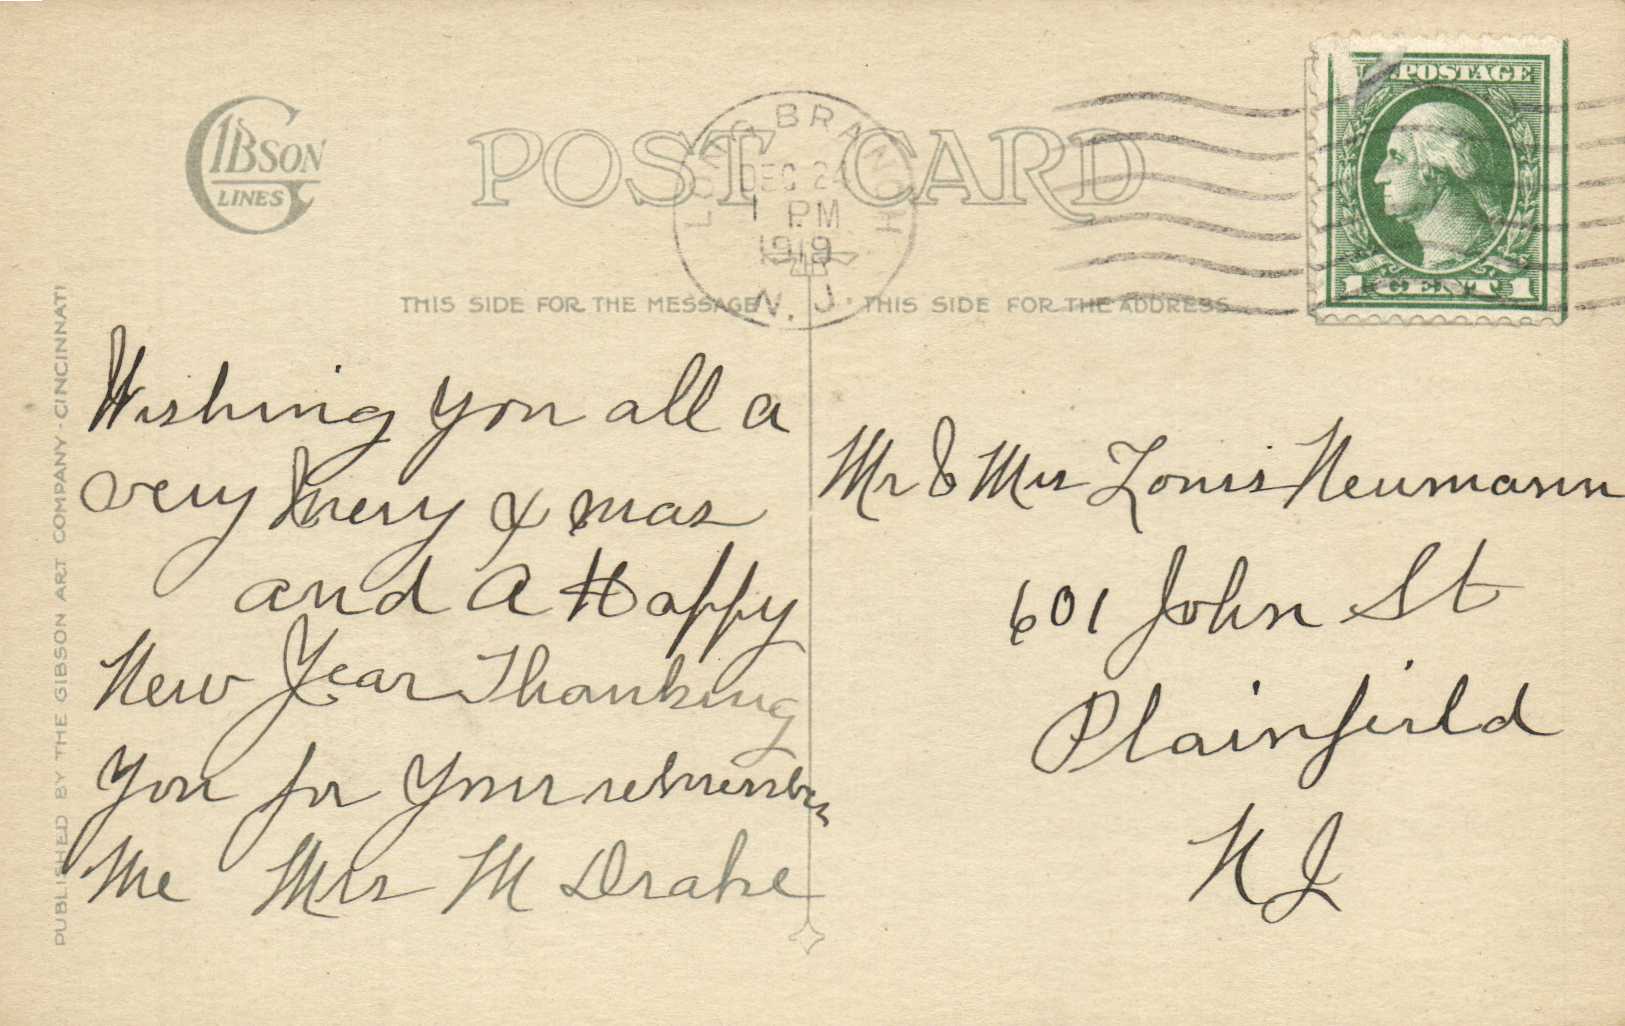 GIBSON
LINES
POST CARD
LONG BRANCH
DEC 24
1 PM
1919
N. J.
U.S. POSTAGE
1 CENT 1
THIS SIDE FOR THE MESSAGE
THIS SIDE FOR THE ADDRESS
PUBLISHED BY THE GIBSON ART COMPANY · CINCINNATI
Wishing you all a
very Mery Xmas
and a Happy
New Year Thanking
you for your
Me Mrs M Drake
Mr & Mrs Louis Neumann
601 John St
Plainfield
N J